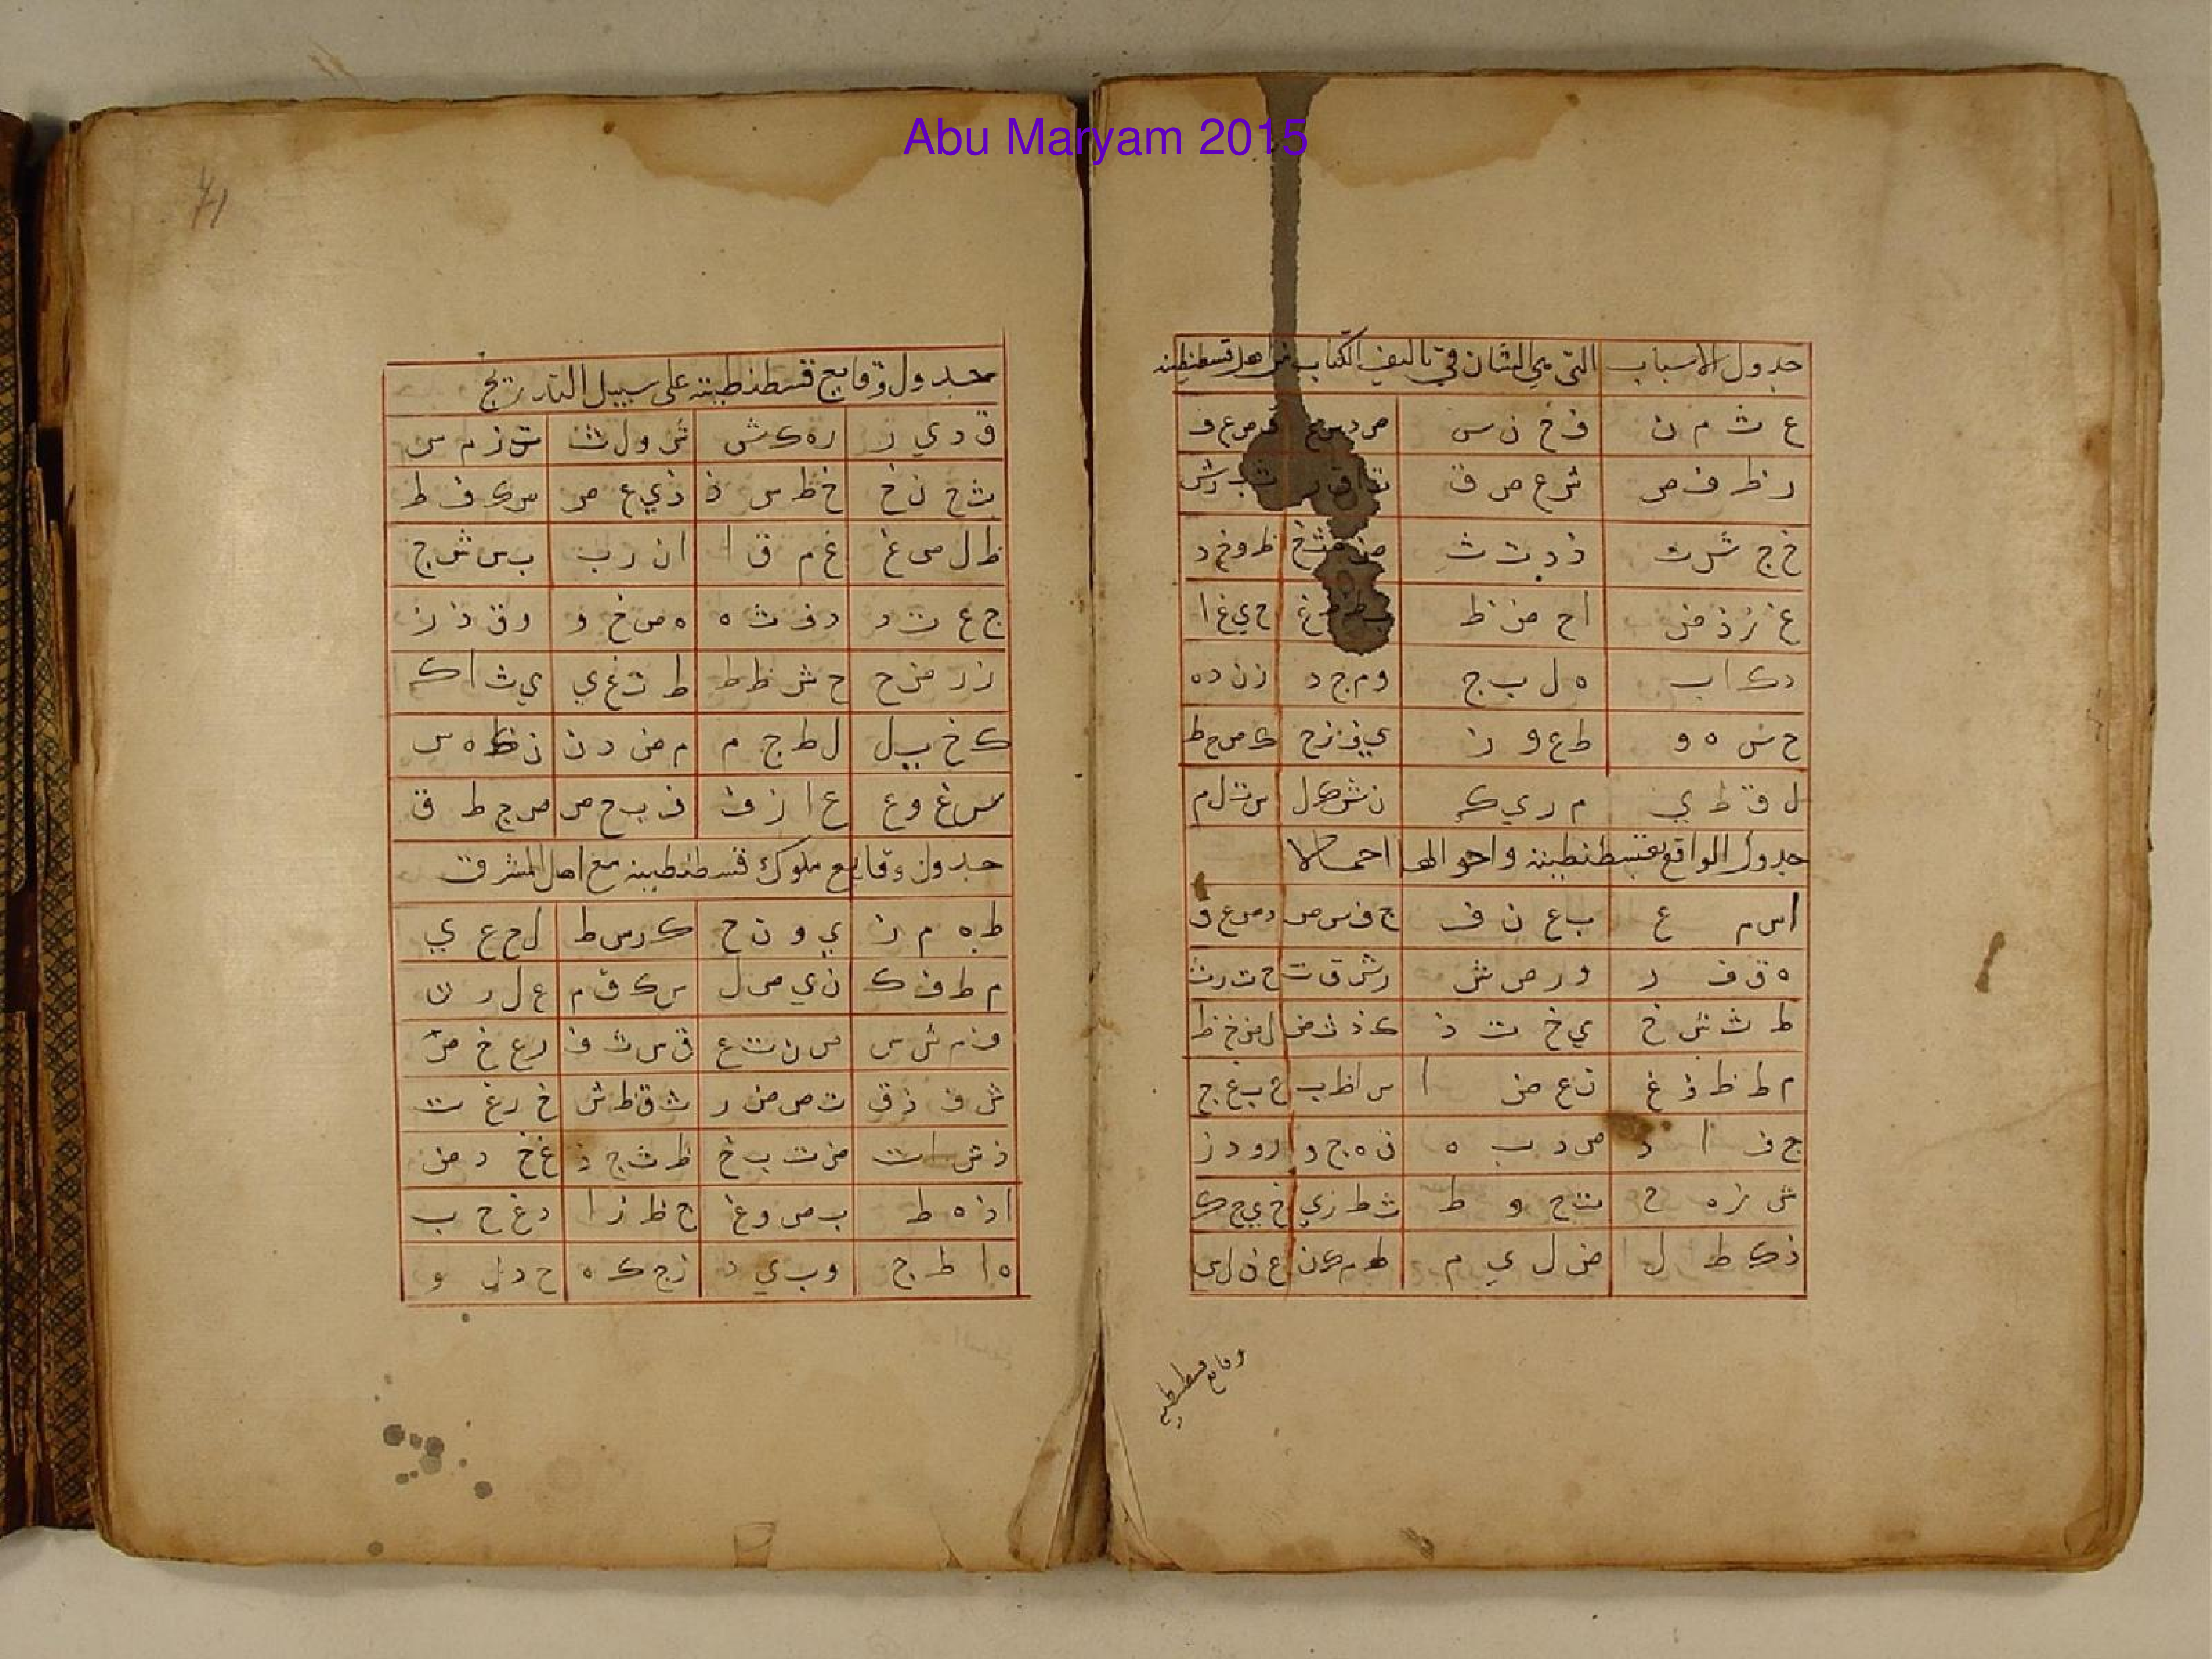 Abu Maryam 2015
جدول الاسباب التى هي لشان في تاليف الكتاب قسطنطينه
ع ث م ن ف خ ن س
ر ظ ف ص ش ع ص ق
خ ج ش ت ذ د ت ث ظ و خ د
غ ز ذ ض ا ح ض ظ ح ي غ ا
د ك ا ب ه ل ب ج و م ج د ز ن د ه
ح س ه و ط ع و ز ي ف ز ح ك ص ح ط
ل ق ط ي م ر ي ك ن ش ك ل س ت ل م
جدول الواقع بقسطنطينه واحوالها اجمالا
ا س م ع ب ع ن ف ج ف س ص د ص ع ق
ه ق ف ر و ر ص ش ز ش ق ت ح ت ر ث
ط ث ش خ ي خ ت ذ ك ذ ث ض ل ض خ ظ
م ط ظ ذ غ ن ع ض ا س ا ظ ب ع ب غ ج
ج ف ا د ص د ب ه ق ه ج و ر و د ز
ش ز ه ح ت ح و ط ث ط ز ي خ ي ح ك
ذ ك ط ل ض ل ي م ظ م ك ن غ ن ل س
وقايع قسطنطينيه
جدول وقايع قسطنطينه على سبيل التدريج
ق د ي ر ر ه ك ش ش و ل ث ت ز م س
ث ح ن خ خ ظ س ذ ذ ي ع ص س ك ف ط
ظ ل ص غ غ م ق ا ا ن ر ب ب س ش ج
ج ع ت د د ف ث ه ه ص خ و و ق ذ ز
ز ر ض ح ح ش ظ ط ط ت غ ي ي ث ا ك
ك خ ب ل ل ط ج م م ض د ن ن ظ ه س
س غ و ع ع ا ز ف ف ب ح ص ص ج ط ق
جدول وقايع ملوك قسطنطينه مع اهل المشرق
ط ه م ز ي و ن ح ك ر س ط ل ح ع ي
م ط ف ك ن ي ص ل س ك ق م ع ل ر ن
ف م ش س ص ن ت ع ق س ث ف ر ع خ ص
ش ف ذ ق ت ص ض ر ث ق ظ ش خ ر غ ت
ذ ش ا ث ض ت ب خ ظ ث ج ذ غ خ د ض
ا ذ ه ظ ب ض و غ ج ظ ز ا د غ ح ب
ه ا ط ج و ب ي د ز ج ك ه ح د ل و